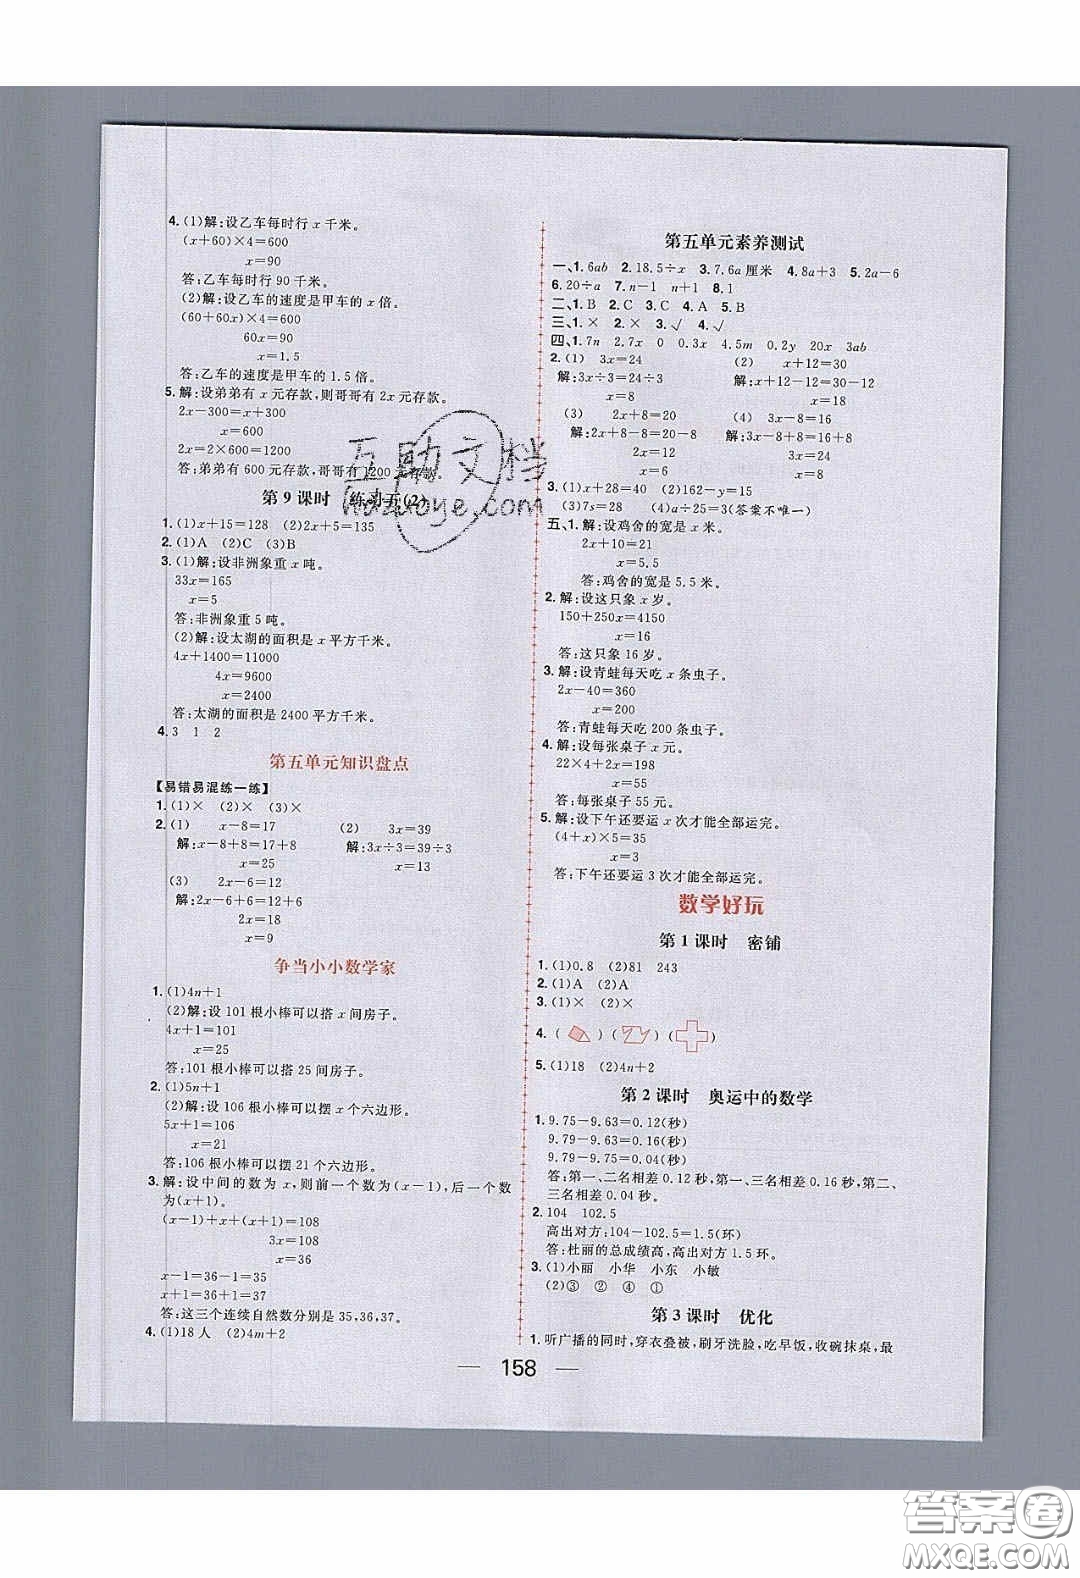 4.(1)解:设乙车每时行 x 千米。
(x+60)×4=600
x=90
答:乙车每时行 90 千米。
(2)解:设乙车的速度是甲车的 x 倍。
(60+60x)×4=600
60x=90
x=1.5
答:乙车的速度是甲车的 1.5 倍。
5.解:设弟弟有 x 元存款,则哥哥有 2x 元存款。
2x-300=x+300
x=600
2x=2×600=1200
答:弟弟有 600 元存款,哥哥有 1200 元存款。
第 9 课时 练习五(2)
1.(1)x+15=128 (2)2x+5=135
2.(1)A (2)C (3)B
3.(1)解:设非洲象重 x 吨。
33x=165
x=5
答:非洲象重 5 吨。
(2)解:设太湖的面积是 x 平方千米。
4x+1400=11000
4x=9600
x=2400
答:太湖的面积是 2400 平方千米。
4.3 1 2
第五单元知识盘点
【易错易混练一练】
1.(1)× (2)× (3)×
2.(1) x-8=17 (2) 3x=39
解:x-8+8=17+8 解:3x÷3=39÷3
x=25 x=13
(3) 2x-6=12
解:2x-6+6=12+6
2x=18
x=9
争当小小数学家
1.(1)4n+1
(2)解:设 101 根小棒可以搭 x 间房子。
4x+1=101
x=25
答:101 根小棒可以搭 25 间房子。
2.(1)5n+1
(2)解:设 106 根小棒可以摆 x 个六边形。
5x+1=106
x=21
答:106 根小棒可以摆 21 个六边形。
3.解:设中间的数为 x,则前一个数为(x-1),后一个数
为(x+1)。
(x-1)+x+(x+1)=108
3x=108
x=36
x-1=36-1=35
x+1=36+1=37
答:这三个连续自然数分别是 35,36,37。
4.(1)18 人 (2)4m+2
第五单元素养测试
一、1.6ab 2.18.5÷x 3.7.6a 厘米 4.8a+3 5.2a-6
6.20÷a 7.n-1 n+1 8.1
二、1.B 2.C 3.C 4.A 5.B
三、1.× 2.× 3.√ 4.√
四、1.7n 2.7x 0 0.3x 4.5m 0.2y 20x 3ab
2.(1) 3x=24 (2) x+12=30
解:3x÷3=24÷3 解:x+12-12=30-12
x=8 x=18
(3) 2x+8=20 (4) 3x-8=16
解:2x+8-8=20-8 解:3x-8+8=16+8
2x=12 3x=24
x=6 x=8
3.(1)x+26=50 (2)162-y=54
(3)7s=28 (4)a÷25=3(答案不唯一)
五、1.解:设鸡舍的宽是 x 米。
2x+10=21
x=5.5
答:鸡舍的宽是 5.5 米。
2.解:设这只象 x 岁。
150+250x=4150
x=16
答:这只象 16 岁。
3.解:设青蛙每天吃 x 条虫子。
2x-40=360
x=200
答:青蛙每天吃 200 条虫子。
4.解:设每张桌子 x 元。
22×4+2x=198
x=55
答:每张桌子 55 元。
5.解:设下午还要运 x 次才能全部运完。
(4+x)×5=35
x=3
答:下午还要运 3 次才能全部运完。
数学好玩
第 1 课时 密铺
1.(1)0.8 (2)81 243
2.(1)A (2)A
3.(1)× (2)×
4.( )( )( )
5.(1)18 (2)4n+2
第 2 课时 奥运中的数学
1.9.75-9.63=0.12(秒)
9.79-9.63=0.16(秒)
9.79-9.75=0.04(秒)
答:第一、二名相差 0.12 秒,第一、三名相差 0.16 秒,第二、
三名相差 0.04 秒。
2.104 102.5
高出对方:104-102.5=1.5(环)
答:杜丽的总成绩高,高出对方 1.5 环。
3.(1)小丽 小华 小东 小敏
(2)③ ② ④ ①
第 3 课时 优化
1.听广播的同时,穿衣叠被,刷牙洗脸,吃早饭,收碗抹桌,最
— 158 —
互助文档
hdzuoye.com
答案圈
MXQE.COM